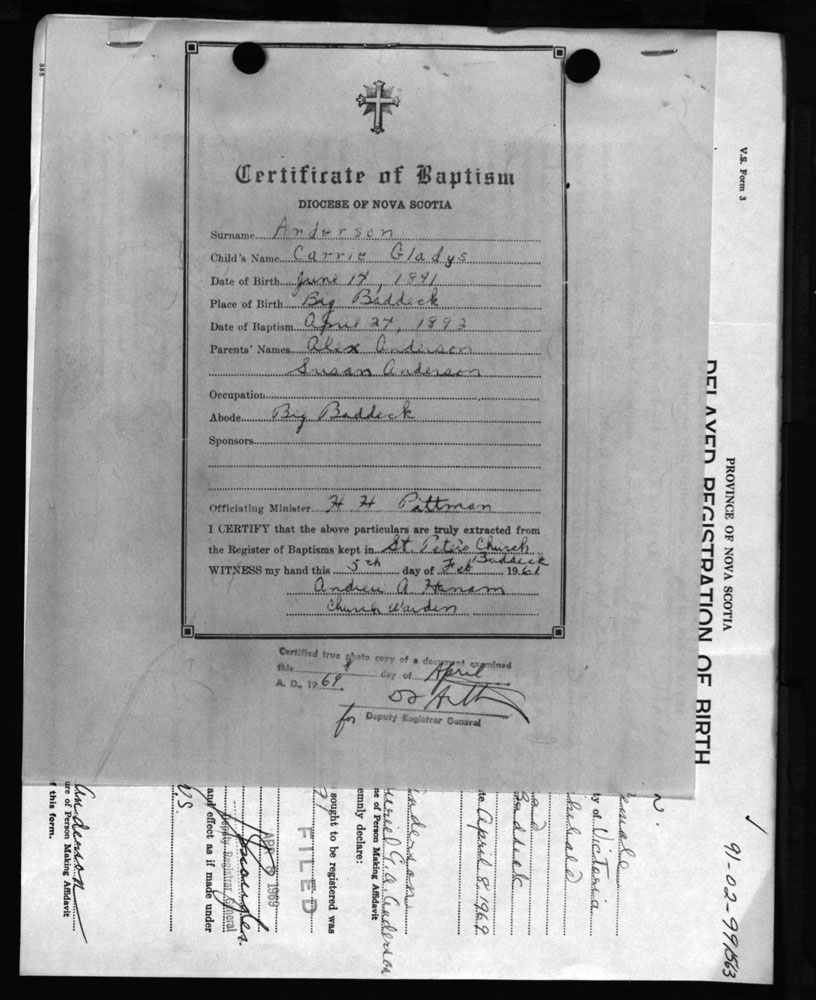 Certificate of Baptism
DIOCESE OF NOVA SCOTIA
Surname Anderson
Child's Name Carrie Gladys
Date of Birth June 14, 1891
Place of Birth Big Baddeck
Date of Baptism April 24, 1892
Parents' Names Alex Anderson
Susan Anderson
Occupation
Abode Big Baddeck
Sponsors
Officiating Minister H H Pittman
I CERTIFY that the above particulars are truly extracted from
the Register of Baptisms kept in St. Peter's Church
Baddeck
WITNESS my hand this 5th day of Feb 1961
Andrew A. Hanam
Church Warden
Certified true photo copy of a document examined
this 8 day of April
A. D., 1969
for Deputy Registrar General
V.S. Form 3
PROVINCE OF NOVA SCOTIA
DELAYED REGISTRATION OF BIRTH
91-02-991563
Female
ty of Victoria
Baddeck
te April 8, 1969
Anderson
Muriel G. A. Anderson
ne of Person Making Affidavit
emnly declare:
sought to be registered was
91
FILED
APR 1969
Deputy Registrar General
and effect as if made under
Anderson
ure of Person Making Affidavit
f this form.